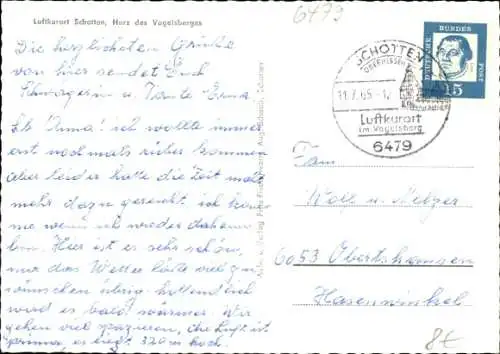 6479
Luftkurort Schotten, Herz des Vogelsberges
Die herzlichsten Grüße
von hier sendet Euch
Schwägerin u. Tante Erna.
Lb. Anna! ich wollte immer
erst nochmals rüber kommen
aber leider hatte die Zeit nicht
mehr dazu gereicht ich komme
wenn ich wieder daheim
bin. Hier ist es sehr schön,
nur das Wetter läßt viel zu
wünschen übrig hoffentlich
wird es bald wärmer. Wir
gehen viel spazieren, die Luft ist
prima, es liegt 320 m hoch.
SCHOTTEN
OBERHESSEN
11.7.65
Luftkurort
im Vogelsberg
6479
DEUTSCHE
BUNDES
POST
15
Fam
Rolf u. Melzer
6053 Obertshausen
Hasenwinkel
8€